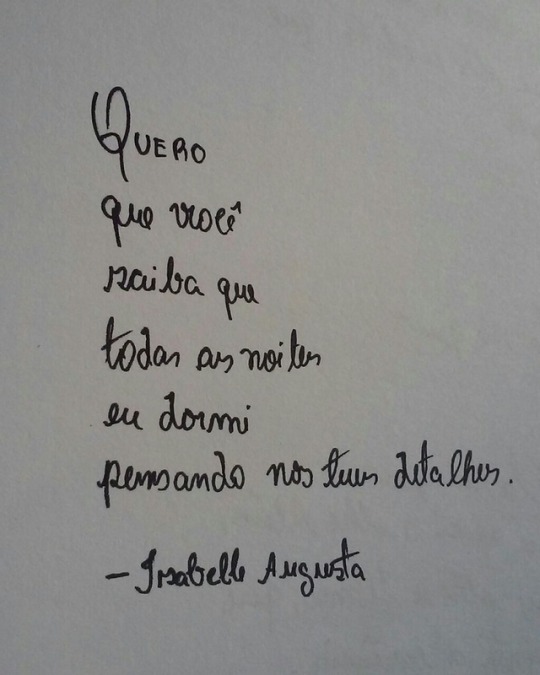 QUERO
que você
saiba que
todas as noites
eu dormi
pensando nos teus detalhes.
- Isabelle Augusta